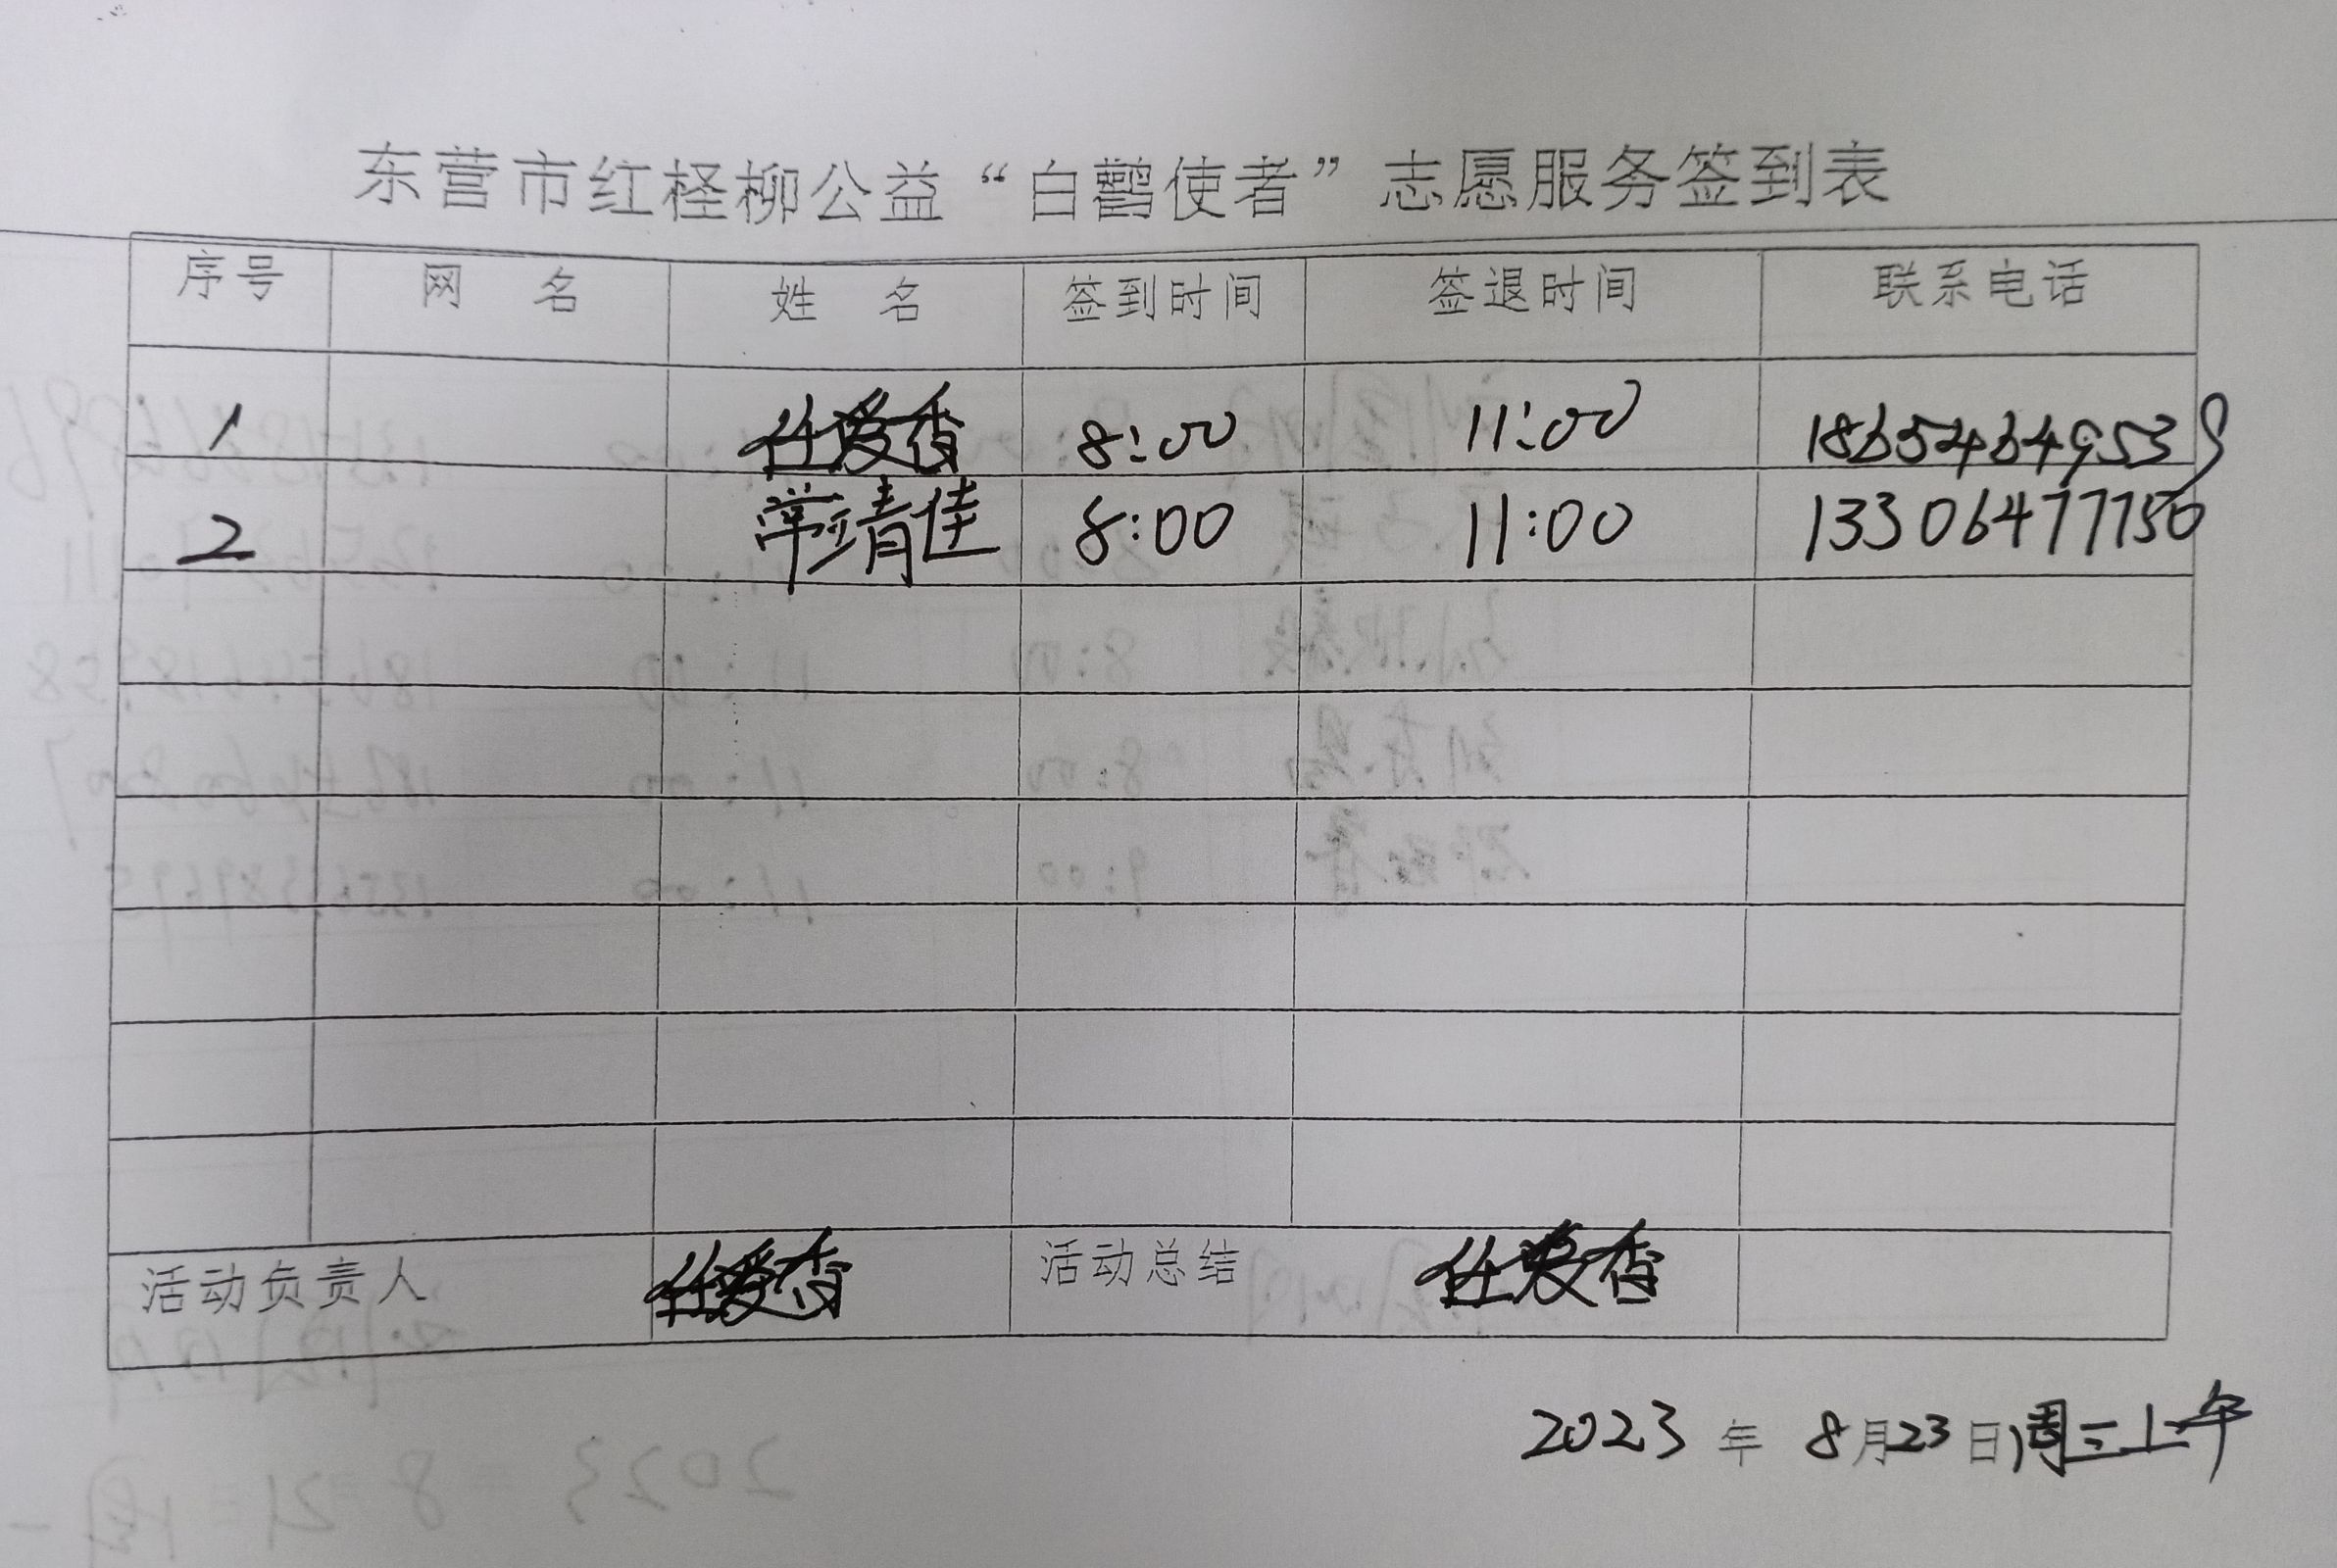 东营市红柽柳公益“白鹳使者”志愿服务签到表
序号 网 名 姓 名 签到时间 签退时间 联系电话
1 任爱香 8:00 11:00 18654649539
2 常靖佳 8:00 11:00 13306477150
活动负责人 任爱香 活动总结 任爱香
2023 年 8月23日周三上午